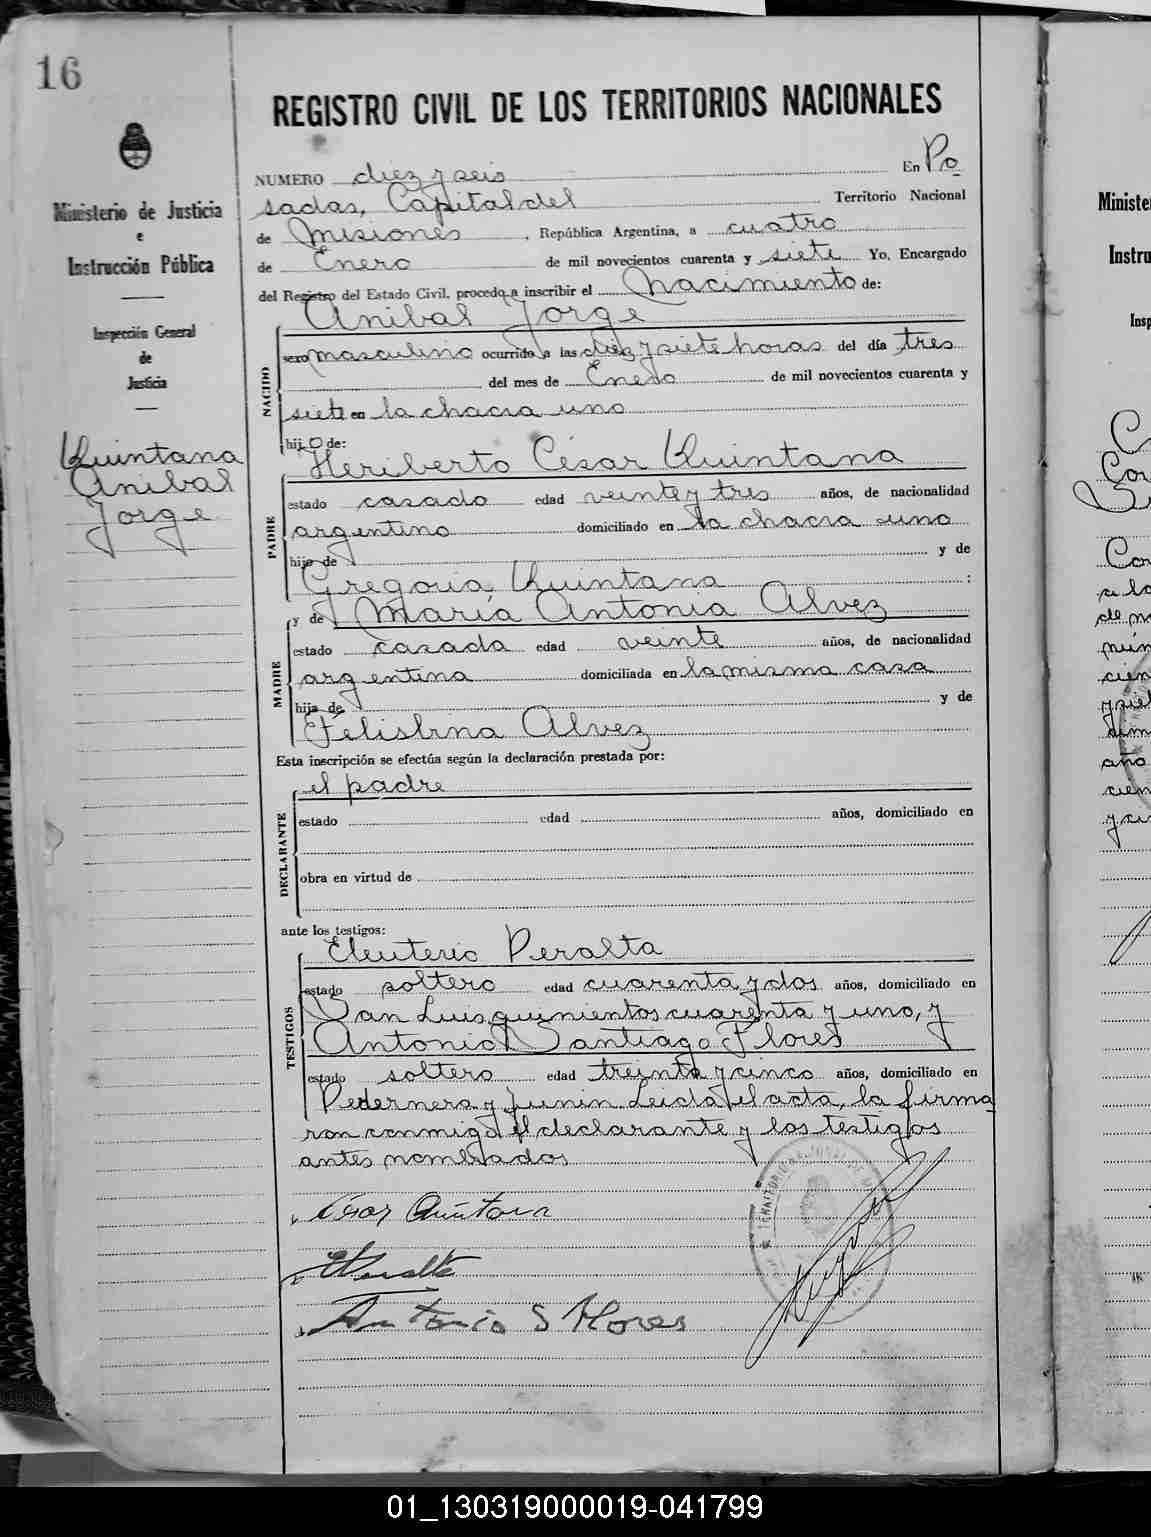 16
REGISTRO CIVIL DE LOS TERRITORIOS NACIONALES
Ministerio de Justicia
e
Instrucción Pública
Inspección General
de
Justicia
Quintana
Anibal
Jorge
NUMERO diez y seis En Po
sadas, Capital del Territorio Nacional
de Misiones, República Argentina, a cuatro
de Enero de mil novecientos cuarenta y siete Yo, Encargado
del Registro del Estado Civil, procedo a inscribir el Nacimiento de:
Anibal Jorge
NACIDO
sexo masculino ocurrido a las diez y siete horas del día tres
del mes de Enero de mil novecientos cuarenta y
siete en la chacra uno
hijo de:
Heriberto César Quintana
PADRE
estado casado edad veinte y tres años, de nacionalidad
argentino domiciliado en la chacra uno
hijo de y de
Gregoria Quintana :
y de María Antonia Alvez
MADRE
estado casada edad veinte años, de nacionalidad
argentina domiciliada en la misma casa
hija de y de
Felisbina Alvez
Esta inscripción se efectúa según la declaración prestada por:
el padre
DECLARANTE
estado edad años, domiciliado en
obra en virtud de
ante los testigos:
Eleuterio Peralta
TESTIGOS
estado soltero edad cuarenta y dos años, domiciliado en
San Luis quinientos cuarenta y uno, y
Antonio Santiago Flores
estado soltero edad treinta y cinco años, domiciliado en
Pedernera y Junin. Leida el acta, la firma
ron conmigo el declarante y los testigos
antes nombrados
César Quintana
EPeralta
Antonio S Flores
Ministe
Instru
Insp
01_130319000019-041799